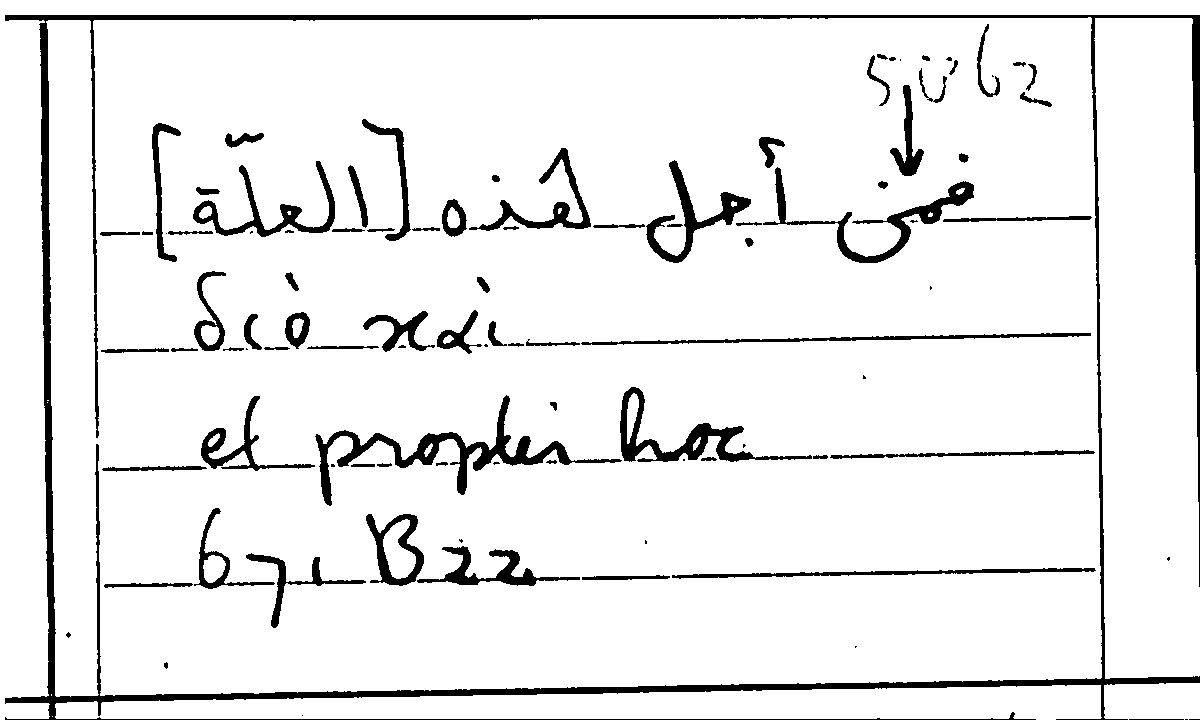 5062
فمن أجل هذه [العلّة]
διὸ καὶ
et propter hoc
671 B22